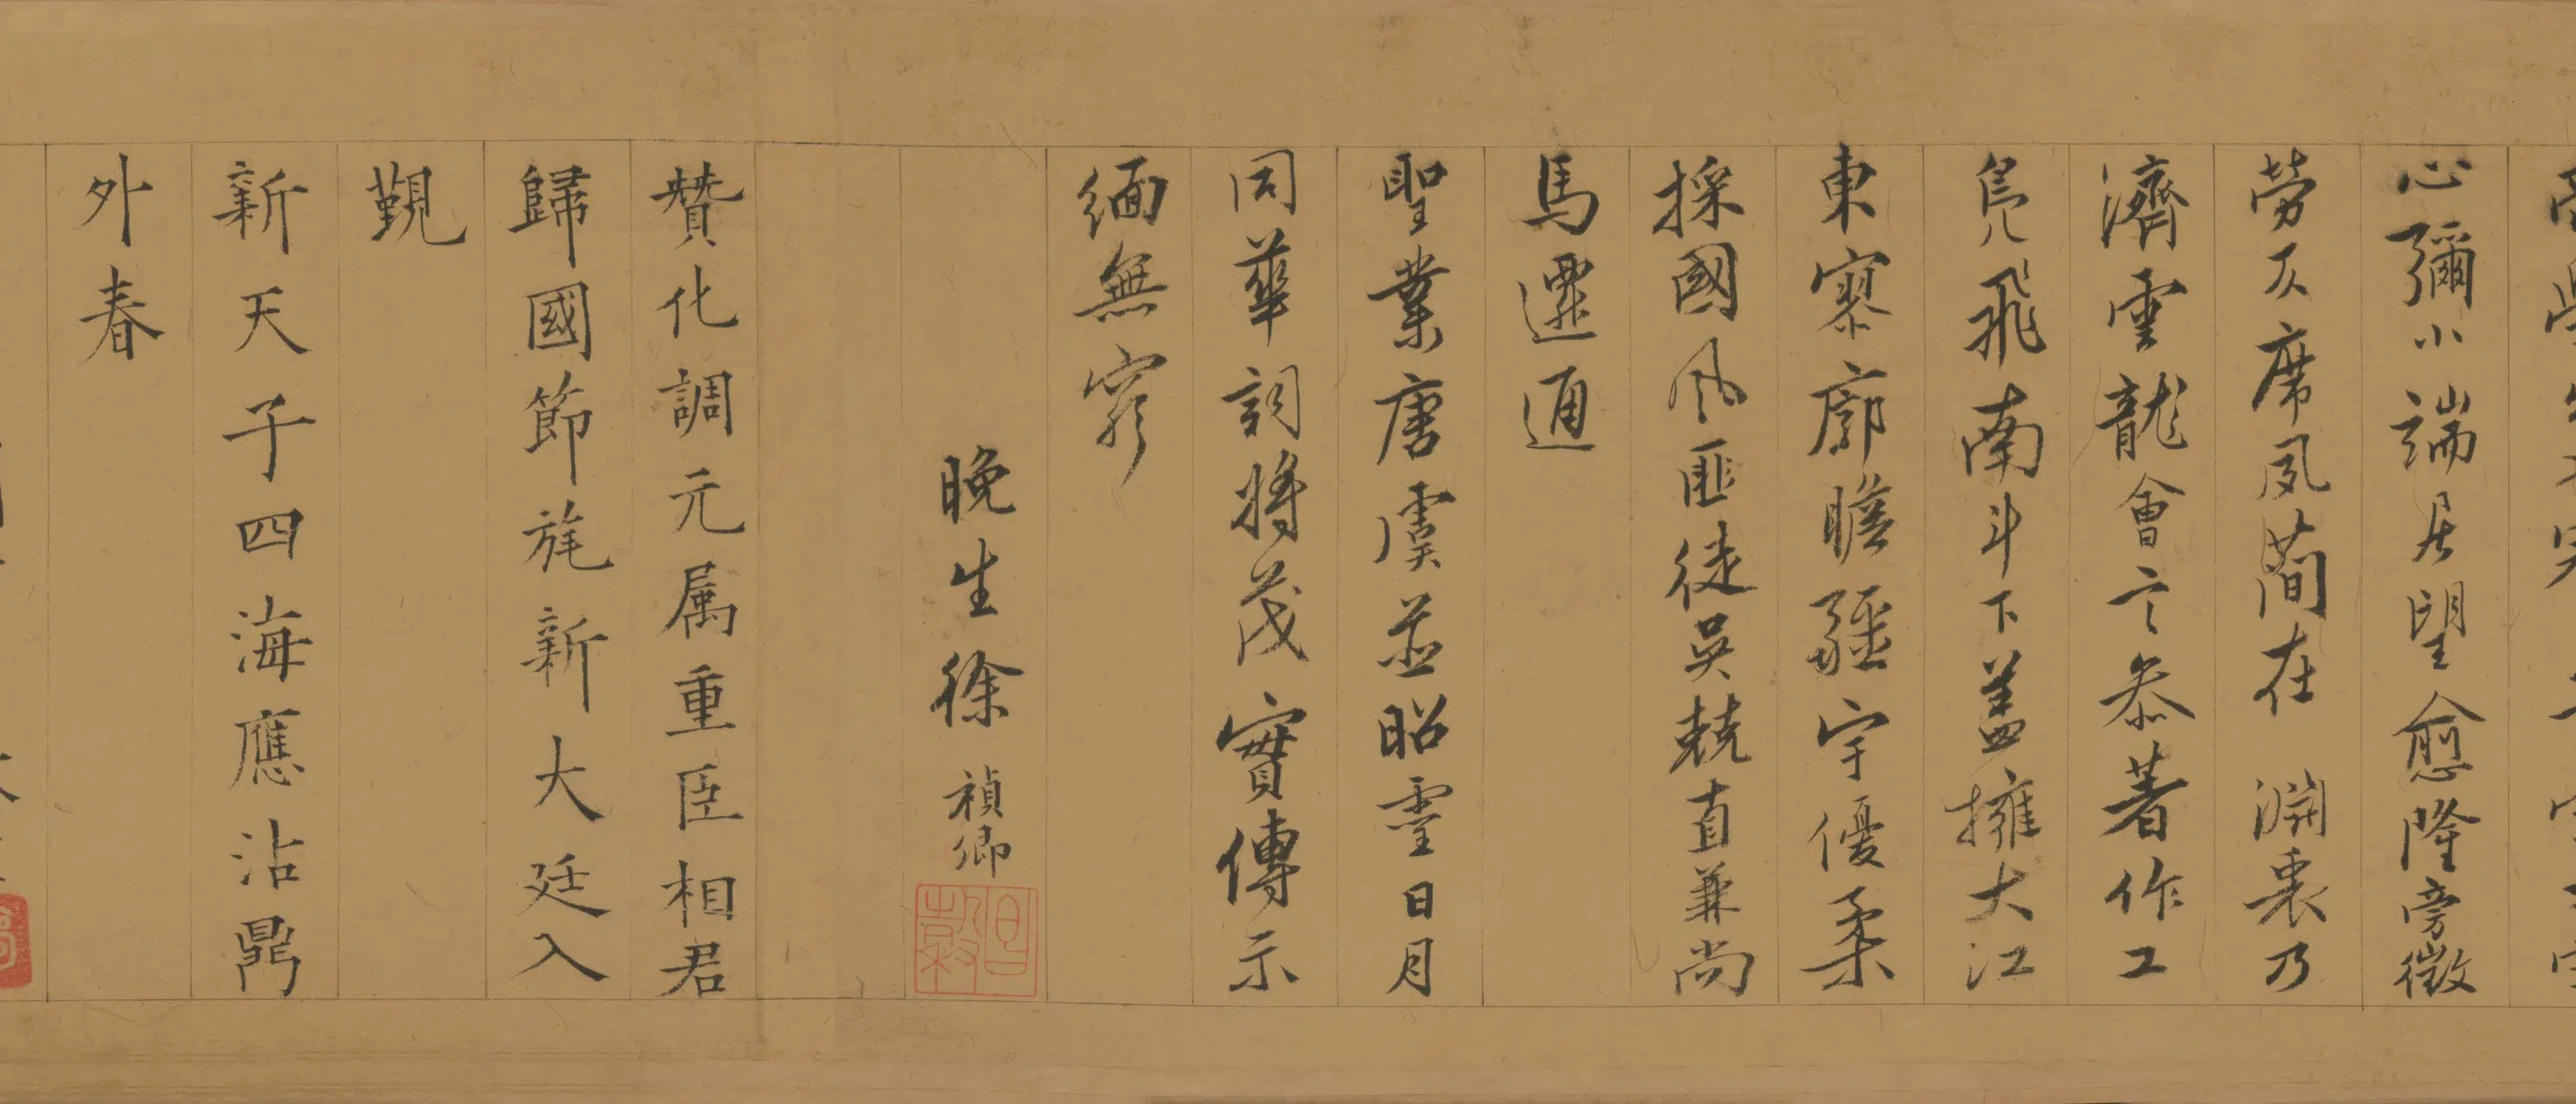 心彌小端居望愈隆旁徵
勞仄席夙簡在 淵衷乃
濟雲龍會言參著作工
鳧飛南斗下蓋擁大江
東寥廓瞻疆宇優柔
採國風匪徒吳兢直兼尚
馬遷通
聖業唐虞並昭靈日月
同華詞將茂實傳示
緬無窮
晚生徐禎卿
贊化調元属重臣相君
歸國節旄新大廷入
覲
新天子四海應沾鼎
外春